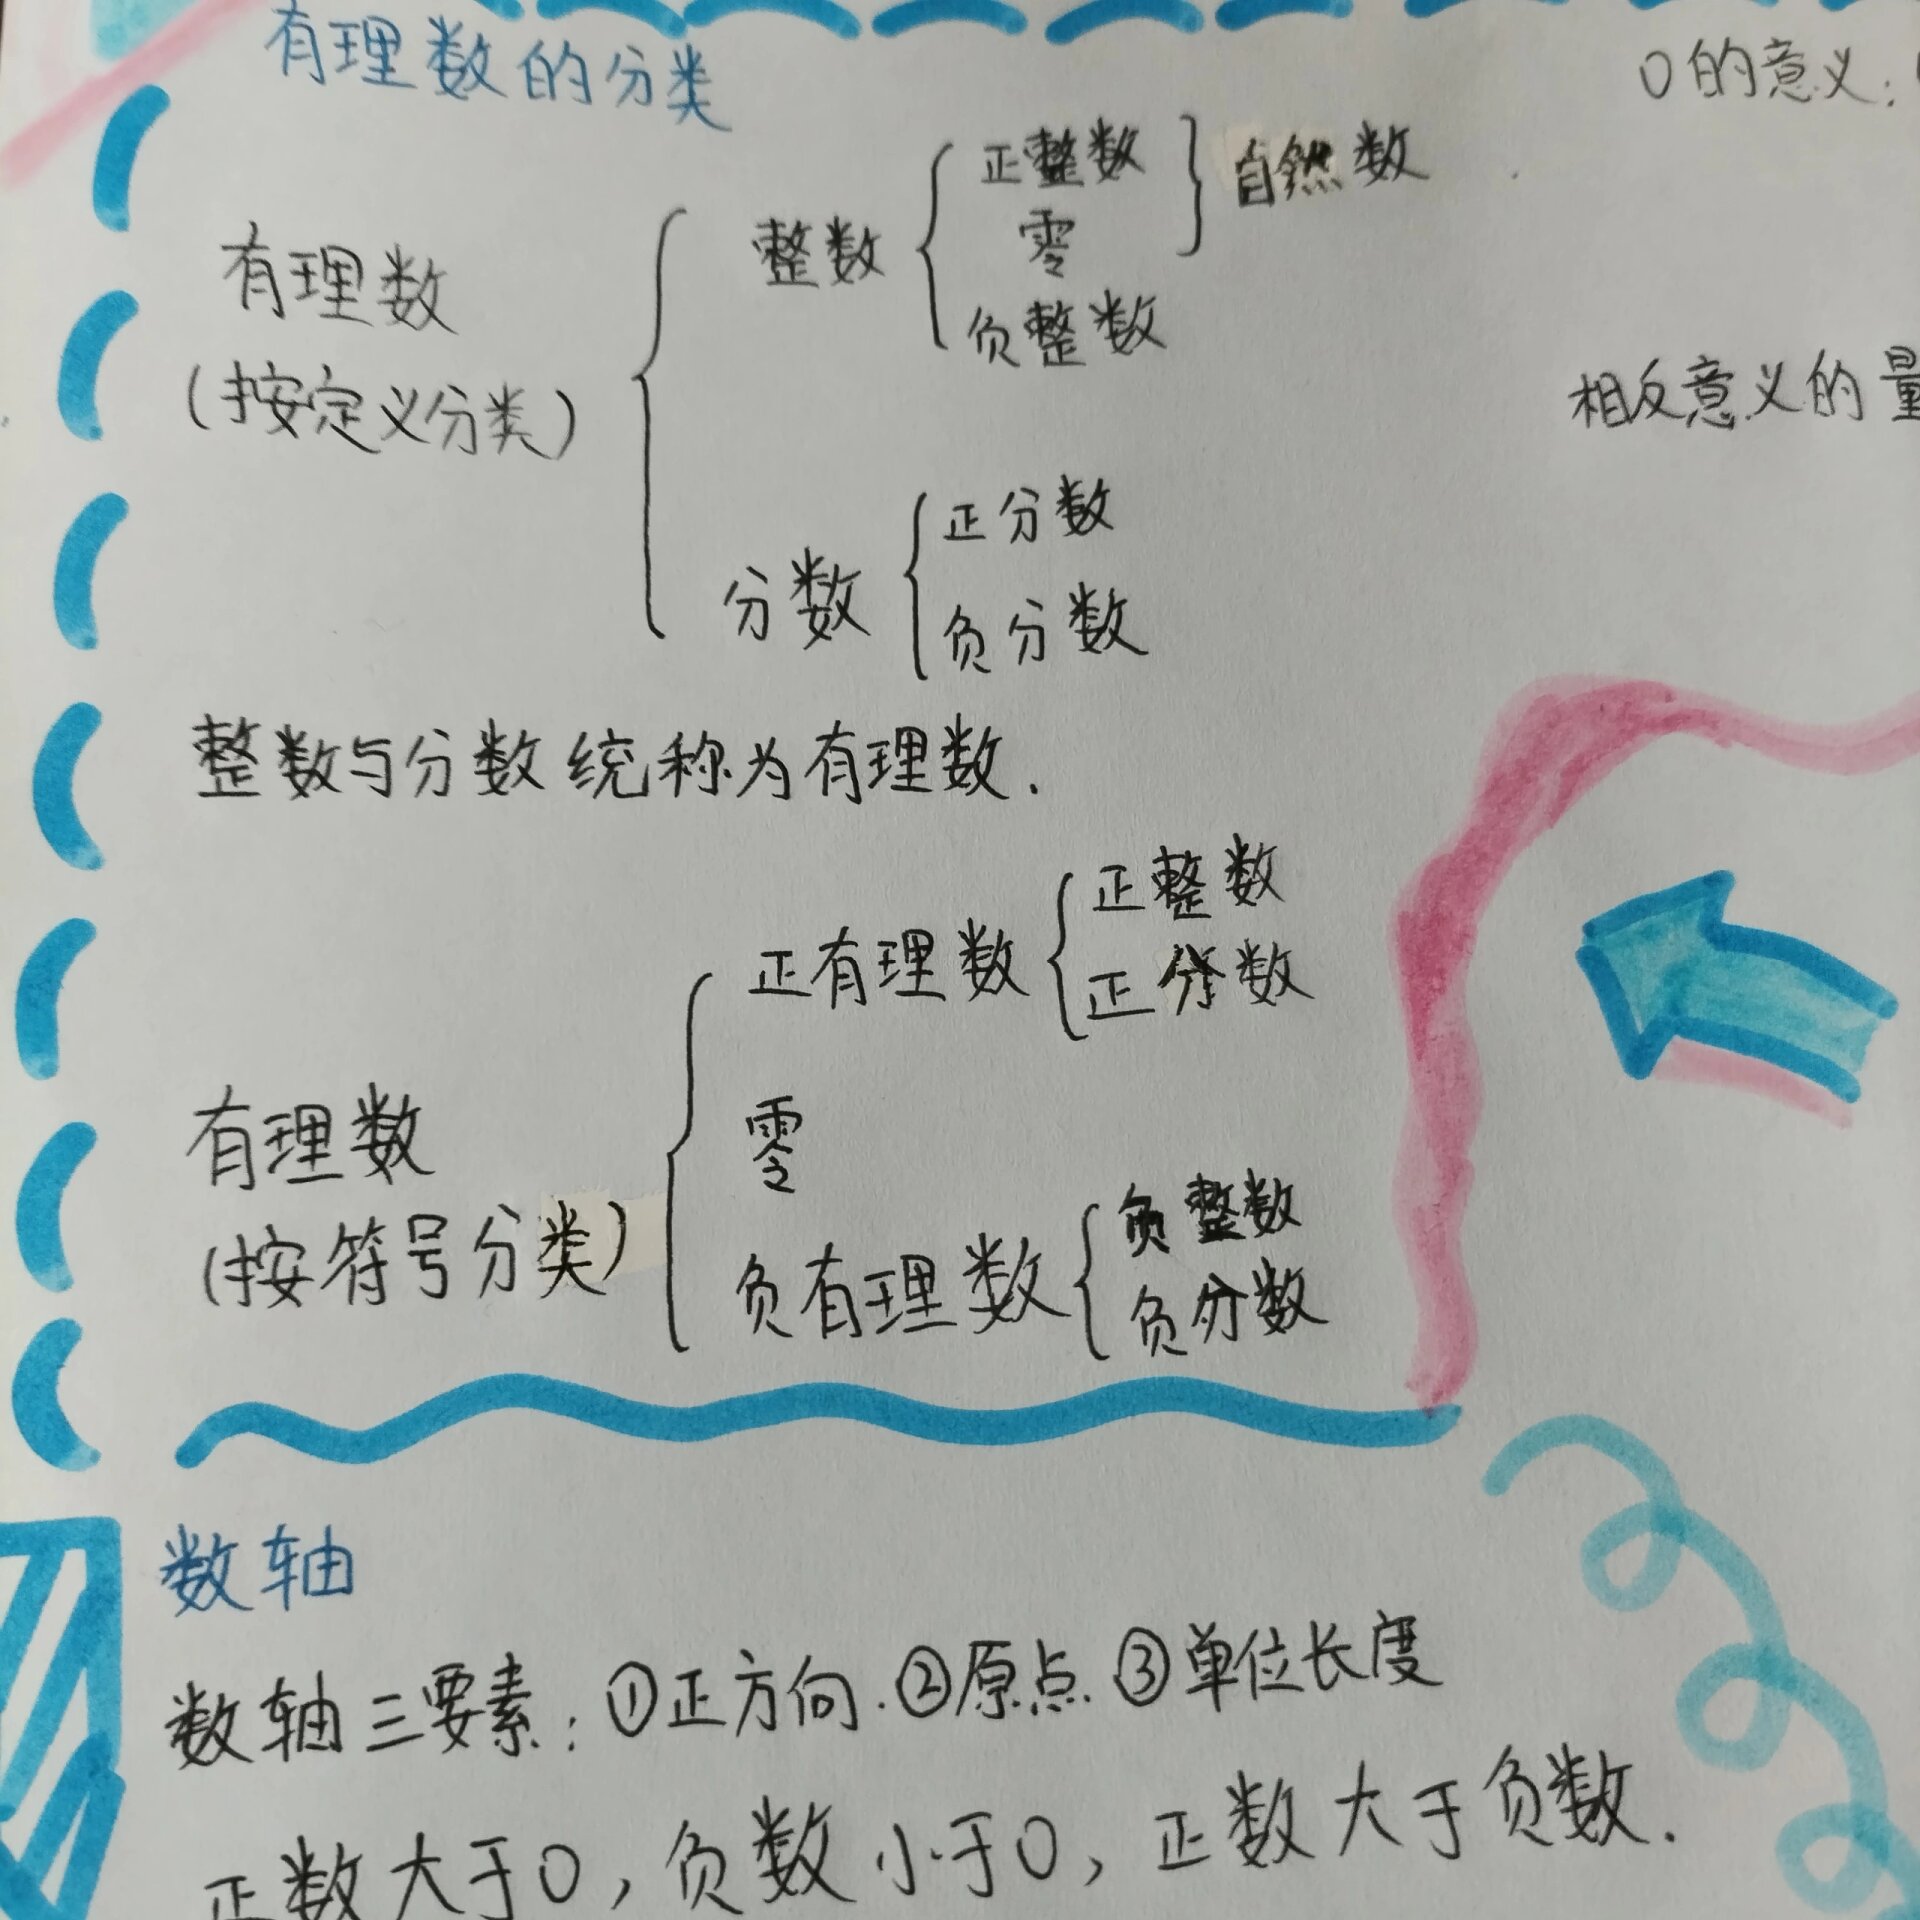 有理数的分类
0的意义:
有理数
(按定义分类)
整数
正整数
零
负整数
自然数
相反意义的量
分数
正分数
负分数
整数与分数统称为有理数.
有理数
(按符号分类)
正有理数
正整数
正分数
零
负有理数
负整数
负分数
数轴
数轴三要素:①正方向.②原点.③单位长度
正数大于0,负数小于0,正数大于负数.